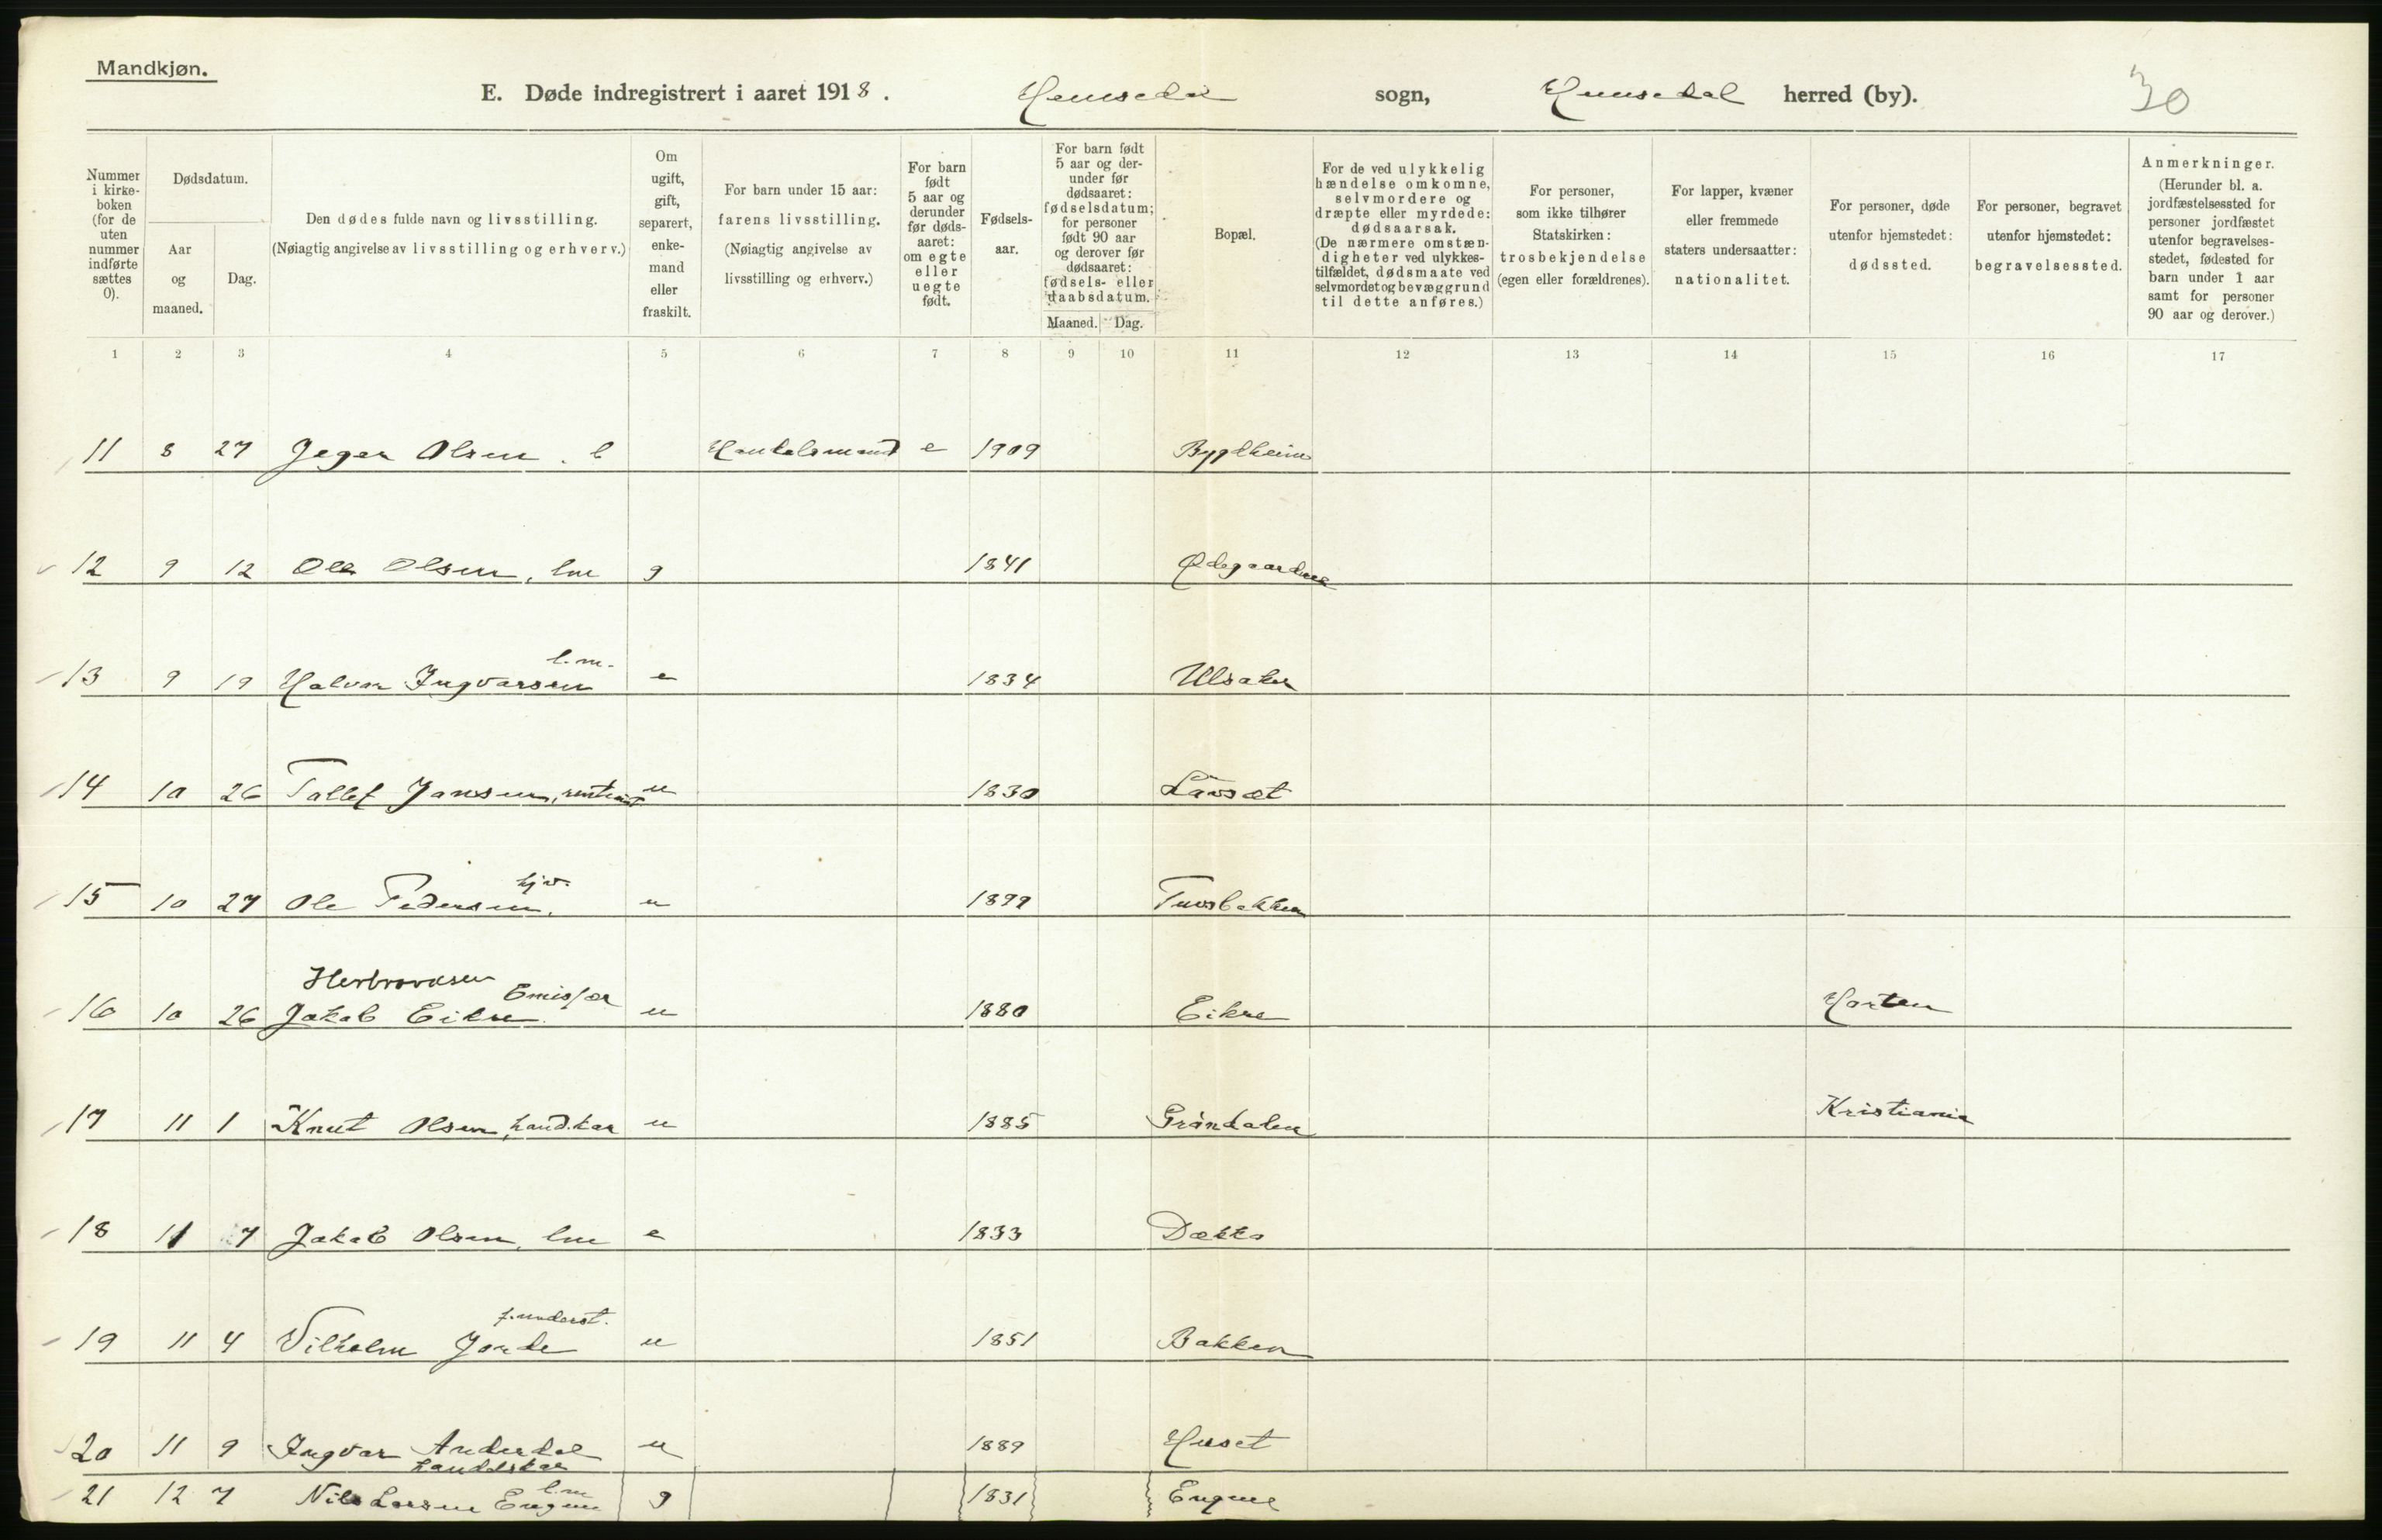 Mandkjøn.
E. Døde indregistrert i aaret 1918. Hemsedal sogn, Hemsedal herred (by). 30
Nummer i kirkeboken (for de uten nummer indførte sættes 0).
Dødsdatum.
Aar og maaned.
Dag.
Den dødes fulde navn og livsstilling.
(Nøiagtig angivelse av livsstilling og erhverv.)
Om ugift, gift, separert, enkemand eller fraskilt.
For barn under 15 aar: farens livsstilling.
(Nøiagtig angivelse av livsstilling og erhverv.)
For barn født 5 aar og derunder før dødsaaret: om egte eller uegte født.
Fødselsaar.
For barn født 5 aar og derunder før dødsaaret: fødselsdatum; for personer født 90 aar og derover før dødsaaret: fødsels- eller daabsdatum.
Maaned. Dag.
Bopæl.
For de ved ulykkelig hændelse omkomne, selvmordere og dræpte eller myrdede: dødsaarsak.
(De nærmere omstændigheter ved ulykkestilfældet, dødsmaate ved selvmordet og bevæggrund til dette anføres.)
For personer, som ikke tilhører Statskirken: trosbekjendelse (egen eller forældrenes).
For lapper, kvæner eller fremmede staters undersaatter: nationalitet.
For personer, døde utenfor hjemstedet: dødssted.
For personer, begravet utenfor hjemstedet: begravelsessted.
Anmerkninger.
(Herunder bl. a. jordfæstelsessted for personer jordfæstet utenfor begravelsesstedet, fødested for barn under 1 aar samt for personer 90 aar og derover.)
1 2 3 4 5 6 7 8 9 10 11 12 13 14 15 16 17
11 8 27 Jeger Olsen. b Handelsmand e 1909 Bygdheim
12 9 12 Ole Olsen, lm g 1841 Ødegaardene
l.m.
13 9 19 Halvor Ingvarsen e 1834 Ulsaker
14 10 26 Tollef Jansen, u 1830 Lavsæt
hjv.
15 10 27 Ole Pedersen, u 1899
Herbrandsen Emissær
16 10 26 Jakob Eikre u 1880 Eikre Horten
17 11 1 Knut Olsen, handskar u 1885 Gröndalen Kristiania
18 11 7 Jakob Olsen, lm e 1833 Dekko
f.underst.
19 11 4 Vilhelm Jorde u 1851 Bakken
20 11 9 Ingvar Anderdal u 1889 Huset
handskar
l.m
21 12 7 Nils Larsen Engene g 1831 Engene